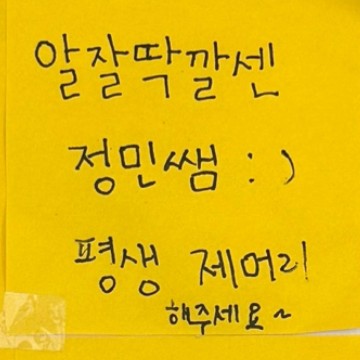 알잘딱깔센
정민쌤 : )
평생 제머리
해주세요~